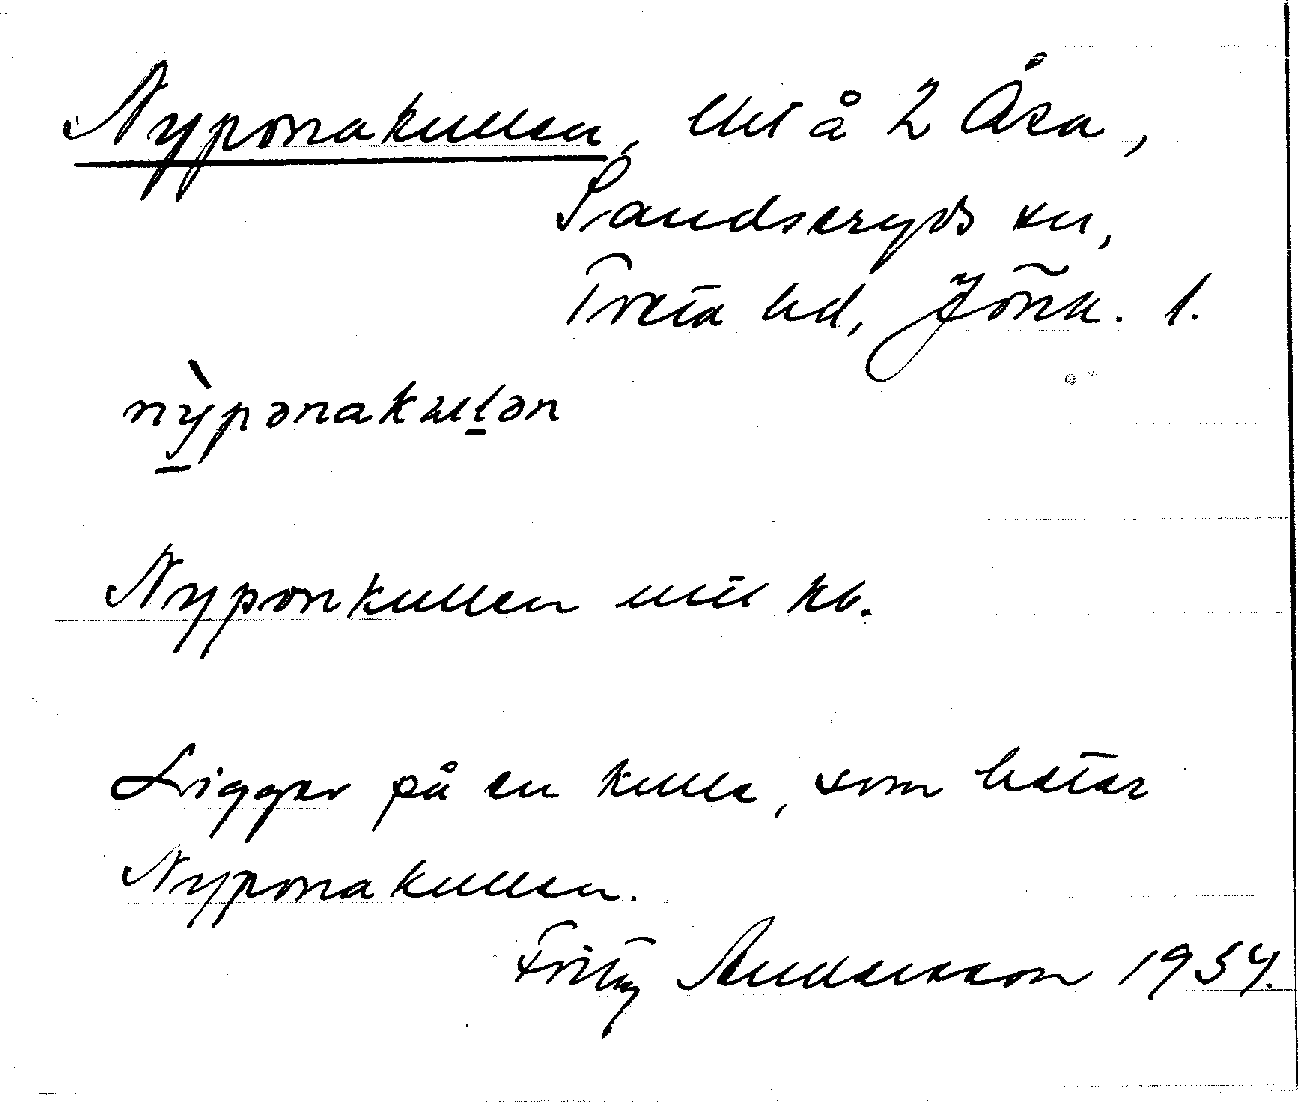 Nyponakullen, lht å 2 Åsa,
Sandseryds sn,
Tveta hd, Jönk. l.
nỳpɔnakulən
Nyponkullen mtl kb.
Ligger på en kulle, som heter
Nyponakullen.
Fritz Andersson 1934.